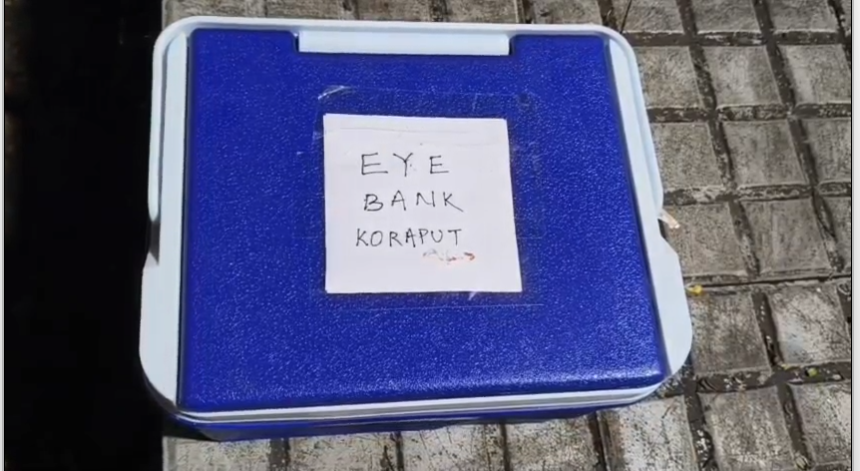 EYE
BANK
KORAPUT